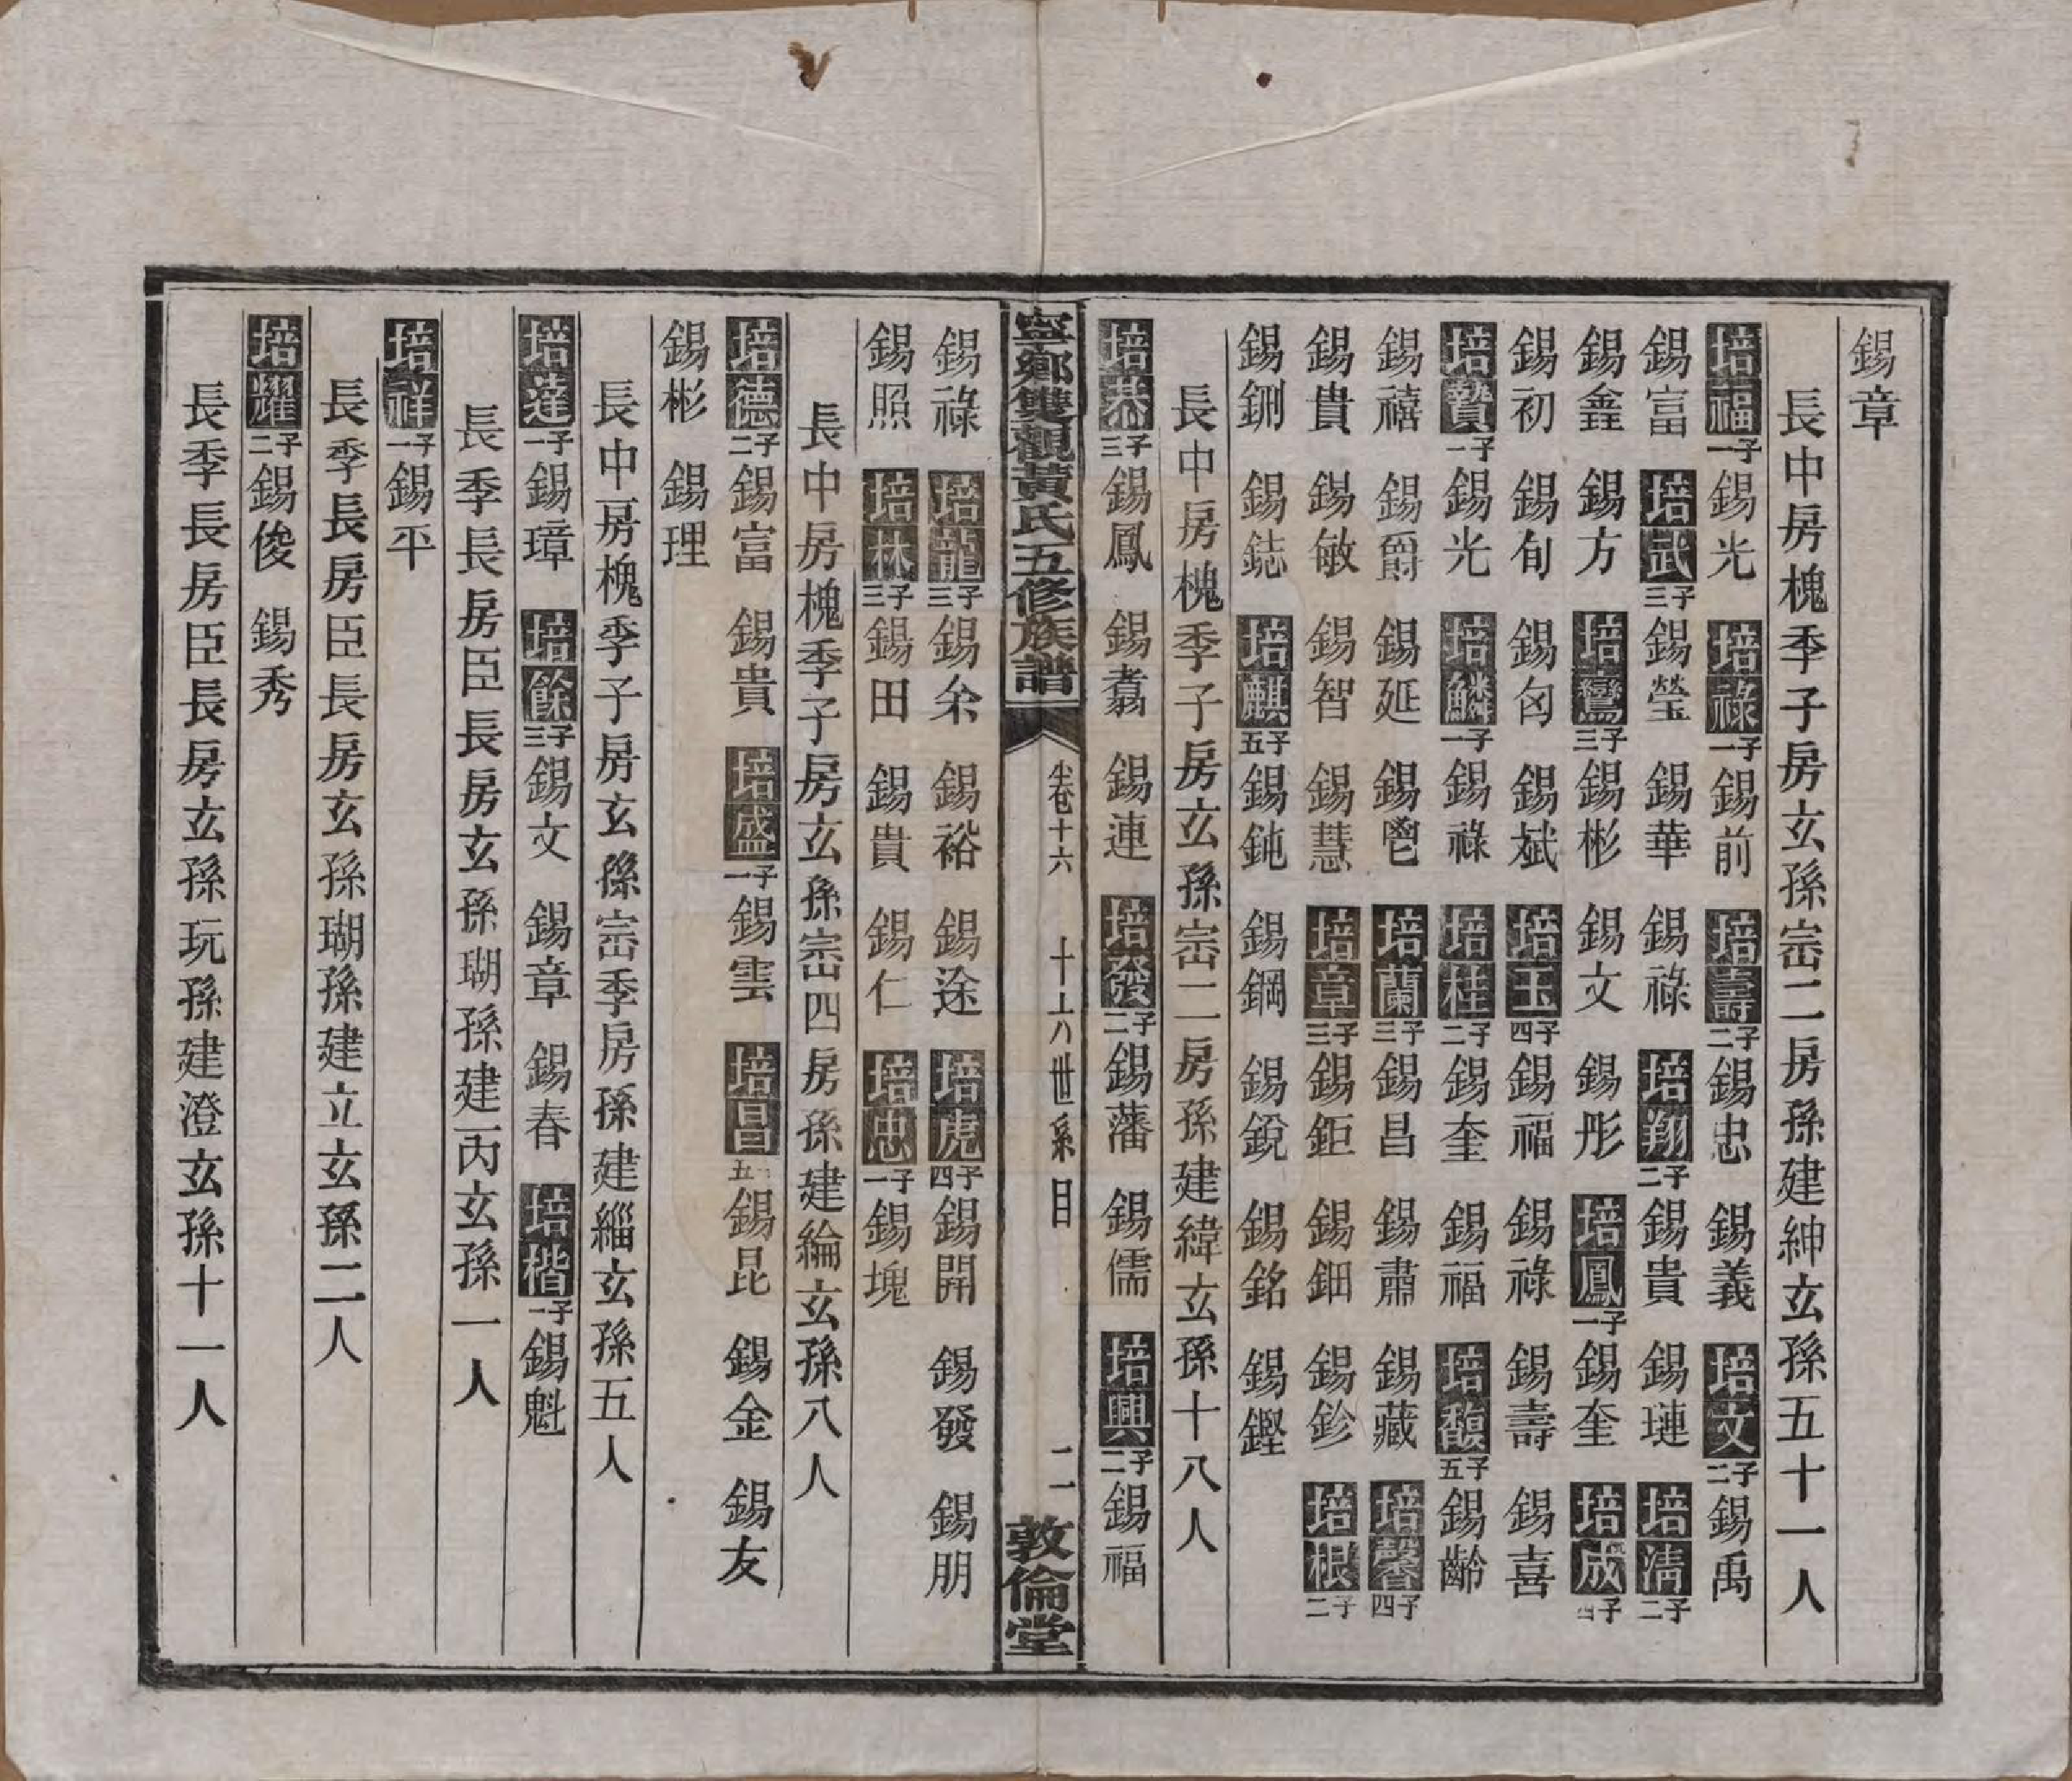 錫章
長中房槐季子房玄孫崈二房孫建紳玄孫五十一人
培福一子錫光 培祿一子錫前 培壽二子錫忠 錫義 培文二子錫禹
錫富 培武三子錫瑩 錫華 錫祿 培翔二子錫貴 錫璉 培清二子
錫鑫 錫方 培鸞三子錫彬 錫文 錫彤 培鳳一子錫奎 培成四子
錫初 錫旬 錫匃 錫斌 培玉四子錫福 錫祿 錫壽 錫喜
培贊一子錫光 培鱗一子錫祿 培桂二子錫奎 錫福 培馥五子錫齡
錫禧 錫爵 錫延 錫鬯 培蘭三子錫昌 錫肅 錫藏 培馨四子
錫貴 錫敏 錫智 錫慧 培章三子錫鉅 錫鈿 錫鉁 培根二子
錫鉶 錫鋕 培麒五子錫鈍 錫鋼 錫銳 錫銘 錫鏗
長中房槐季子房玄孫崈二房孫建緯玄孫十八人
培恭三子錫鳳 錫翥 錫連 培發二子錫藩 錫儒 培興二子錫福
寧鄉雙觀黃氏五修族譜 卷十六 世系目 二 敦倫堂
錫祿 培龍三子錫余 錫裕 錫途 培虎四子錫開 錫發 錫朋
錫照 培林三子錫田 錫貴 錫仁 培忠一子錫塊
長中房槐季子房玄孫崈四房孫建綸玄孫八人
培德二子錫富 錫貴 培盛一子錫雲 培昌五 錫昆 錫金 錫友
錫彬 錫理
長中房槐季子房玄孫崈季房孫建緇玄孫五人
培蓬一子錫璋 培餘三子錫文 錫章 錫春 培楷一子錫魁
長季長房臣長房玄孫瑚孫建丙玄孫一人
培祥一子錫平
長季長房臣長房玄孫瑚孫建立玄孫二人
培耀二子錫俊 錫秀
長季長房臣長房玄孫玩孫建澄玄孫十一人